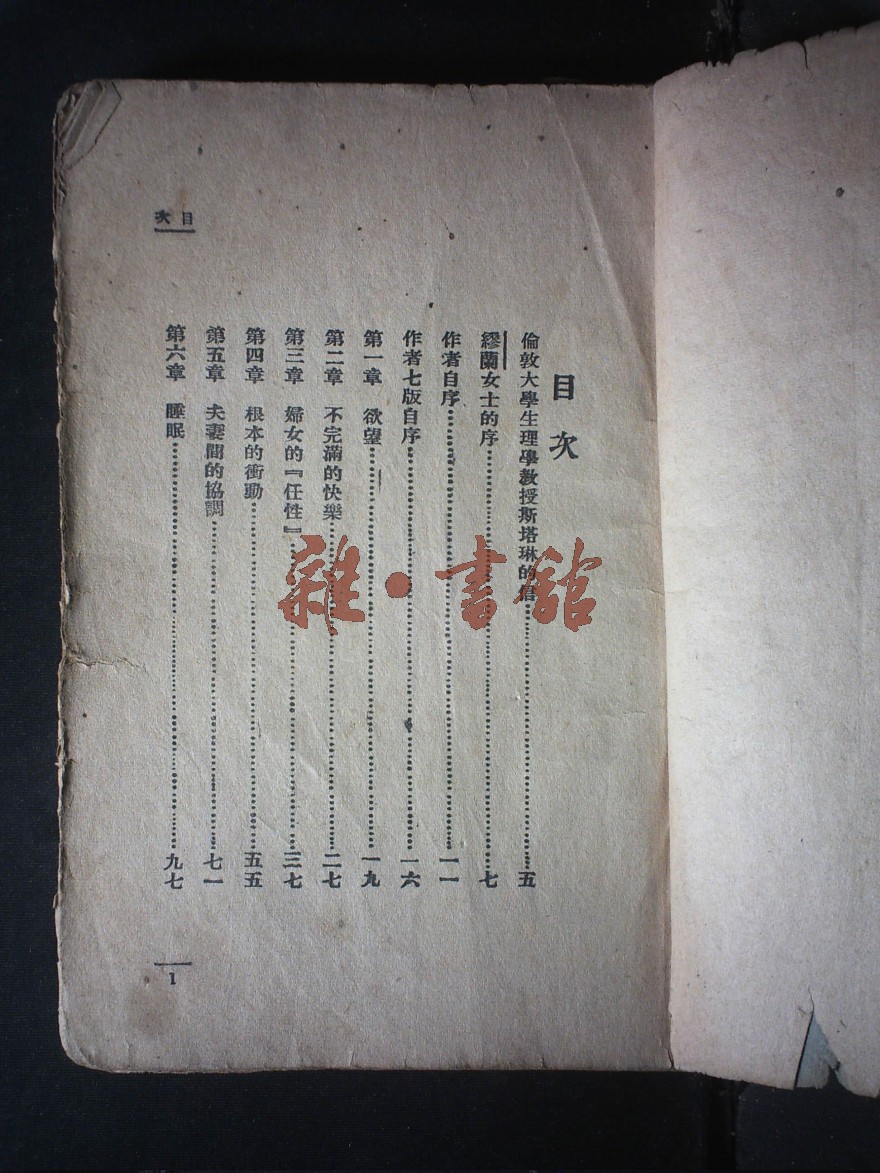 目次
倫敦大學生理學教授斯塔琳的信 五
繆蘭女士的序 七
作者自序 一一
作者七版自序 一六
第一章 欲望 一九
第二章 不完滿的快樂 二七
第三章 婦女的『任性』 三七
第四章 根本的衝動 五五
第五章 夫妻間的協調 七一
第六章 睡眠 九七
目次
1
雜·書館